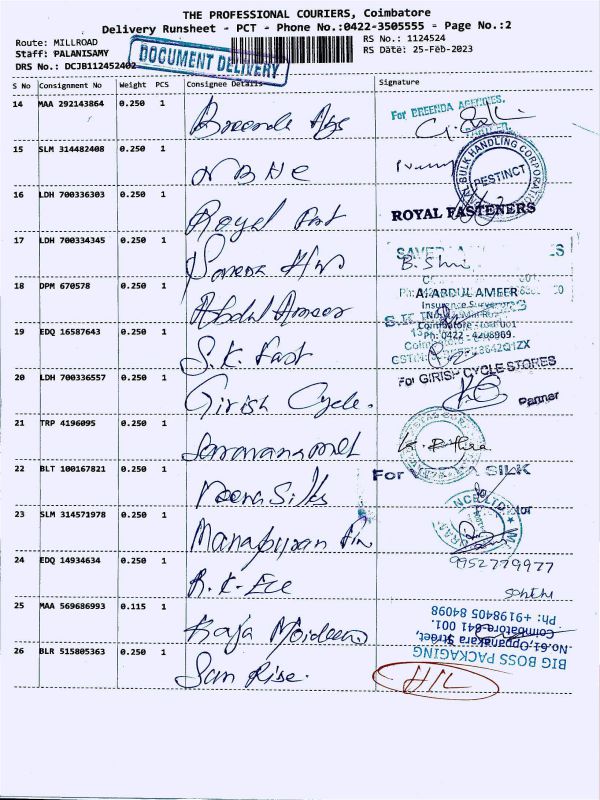 THE PROFESSIONAL COURIERS, Coimbatore
Delivery Runsheet - PCT - Phone No.:0422-3505555 = Page No.:2
Route: MILLROAD
RS No.: 1124524
Staff: PALANISAMY
RS Date: 25-Feb-2023
DRS No.: DCJB112452402
DOCUMENT DELIVERY
S No Consignment No Weight PCS Consignee Details Signature
14 MAA 292143864 0.250 1 Breenda Ags
For BREENDA AGENCIES,
15 SLM 314482408 0.250 1 NBHC
BULK HANDLING CORPORATION
PESTINCT
16 LDH 700336303 0.250 1 Royal Fast
ROYAL FASTENERS
17 LDH 700334345 0.250 1
B. Shri
18 DPM 670578 0.250 1 Abdul Ameer
A. ABDUL AMEER
Insurance Surveyor
Coimbatore
Ph: 0422 - 4208969.
19 EDQ 16587643 0.250 1 S.K. Fast
20 LDH 700336557 0.250 1 Girish Cycle.
For GIRISH CYCLE STORES
Partner
21 TRP 4196095 0.250 1
22 BLT 100167821 0.250 1 Veena Silks
For VEENA SILK
23 SLM 314571978 0.250 1 Manappuram Fin
24 EDQ 14934634 0.250 1 R.K-Ece
9952779977
25 MAA 569686993 0.115 1 Raja Moideen
BIG BOSS PACKAGING
No.61-Oppanakara Street,
Coimbatore-641 001.
Ph: +9198405 84098
26 BLR 515805363 0.250 1 Sun Rise.